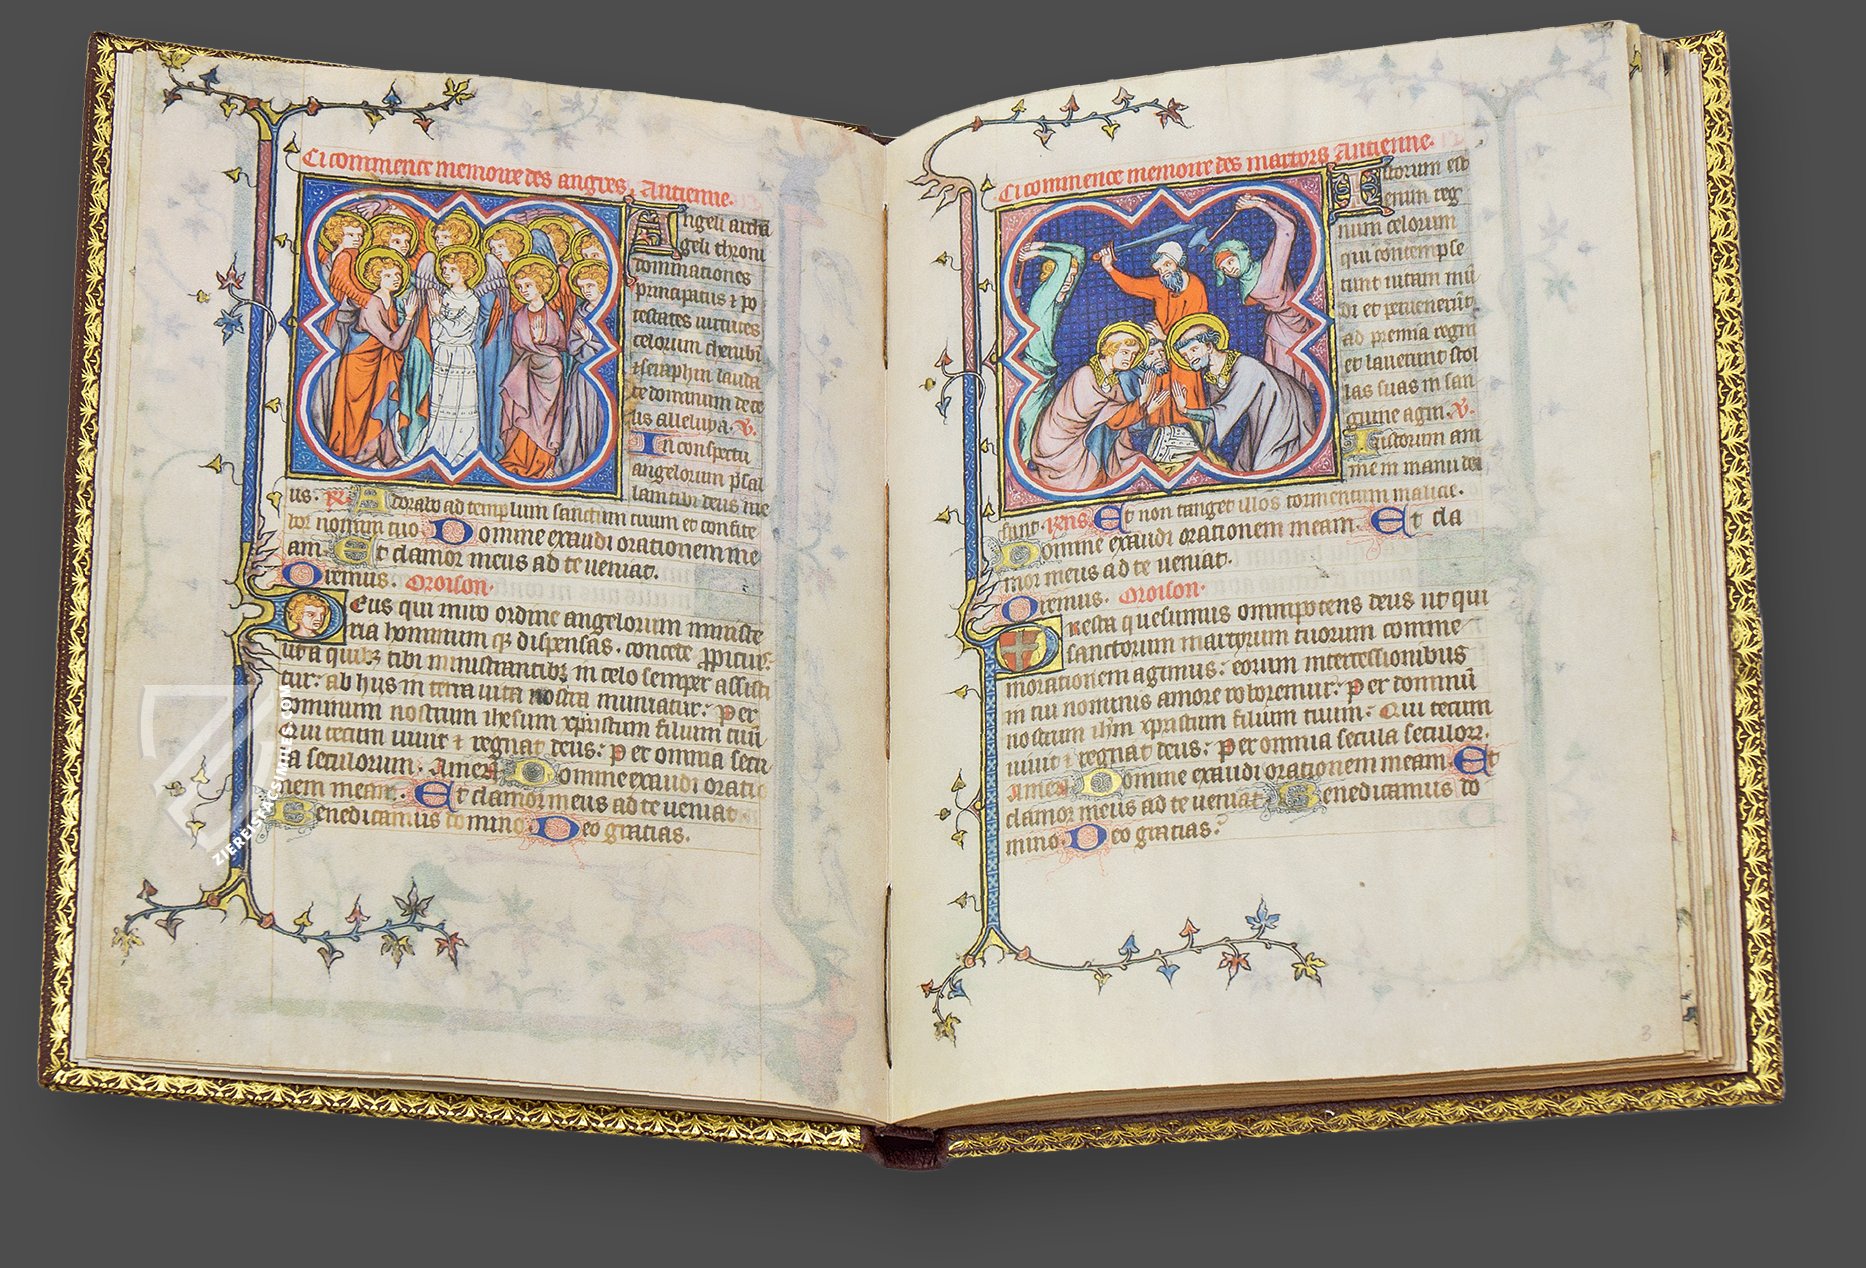 Ci commence memoire des angres. Antienne.
Angeli archa
geli throni
dominationes
principatus ⁊ po
testates uirtutes
celorum cherubi
⁊ seraphin lauda
te dominum de ce
lis alleluya. V.
In conspectu
angelorum psal
lam tibi deus me
us. R. Adorabo ad templum sanctum tuum et confite
bor nomini tuo Domine exaudi orationem me
am. Et clamor meus ad te ueniat.
Oremus. Oroison.
Deus qui miro ordine angelorum ministe
ria hominum q; dispensas. concede ppitius.
ut a quibz tibi ministrantibz in celo semper assisti
tur: ab hiis in terra uita nostra muniatur: Per
dominum nostrum ihesum xpristum filium tuū
Qui tecum uiuit ⁊ regnat deus: Per omnia secu
la seculorum. Amen Domine exaudi oratio
nem meam. Et clamor meus ad te ueniat.
Benedicamus domino. Deo gratias.
Ci commence memoire des martyrs Antienne.
Istorum est
enim reg
num celorum
qui contempse
runt uitam mū
di et peruenerūt
ad premia regni
et lauerunt stol
las suas in san
guine agni. V.
Iustorum ani
me in manu dei
sunt. Rns. Et non tanget illos tormentum malicie.
Domine exaudi orationem meam. Et cla
mor meus ad te ueniat.
Oremus. Oroison.
Presta quesumus omnipotens deus ut qui
sanctorum martyrum tuorum comme
morationem agimus: eorum intercessionibus
in tui nominis amore roboremur: Per dominū
nostrum ihm xpristum filium tuum: Qui tecum
uiuit ⁊ regnat deus: Per omnia secula seculorz.
Amen Domine exaudi orationem meam Et
clamor meus ad te ueniat. Benedicamus do
mino. Deo gratias.
3
ZIEREIS FACSIMILES.COM